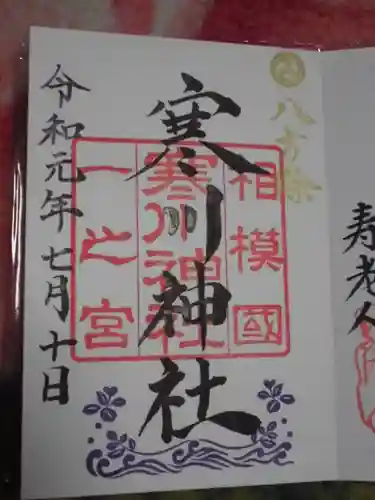 八方除
寒川神社
相模國
寒川神社
一之宮
令和元年七月十日
寿老人